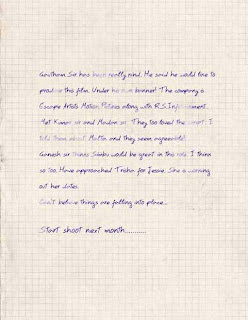 Gautham Sir has been really kind. He said he would like to
produce this film. Under his own banner! The company is
Escape Artists Motion Pictures along with R.S.Infotainment.
Met Kumar sir and Madan sir. They too loved the script. I
told them about Malta and they seem agreeable!
Ganesh sir thinks Simbu would be great in this role. I think
so too. Have approached Trisha for Jessie. She is working
out her dates.
Can't believe things are falling into place...
Start shoot next month...........